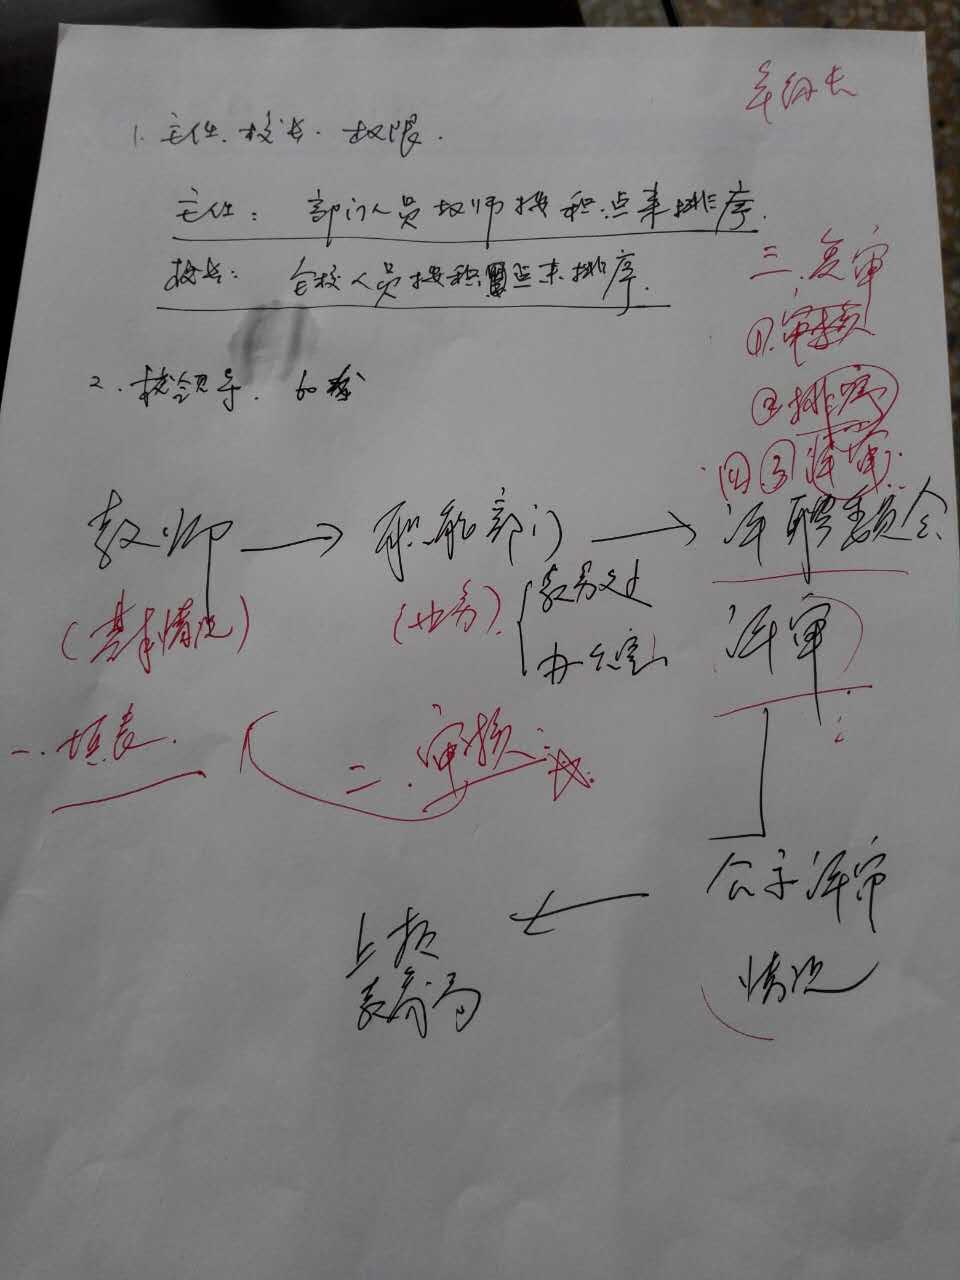 年级长
1. 主任、校长. 权限.
主任: 部门人员教师按积点来排序.
校长: 全校人员按积点来排序.
2. 校领导.
三. 复审
① 审核
② 排序
四 ③ 评审.
教师 → 职能部门 → 评聘委员会
(基本情况) (业务). { 教务处 办公室
(评审)
一. 填表.
二. 审核
公示评审
情况
← 上报
教育局